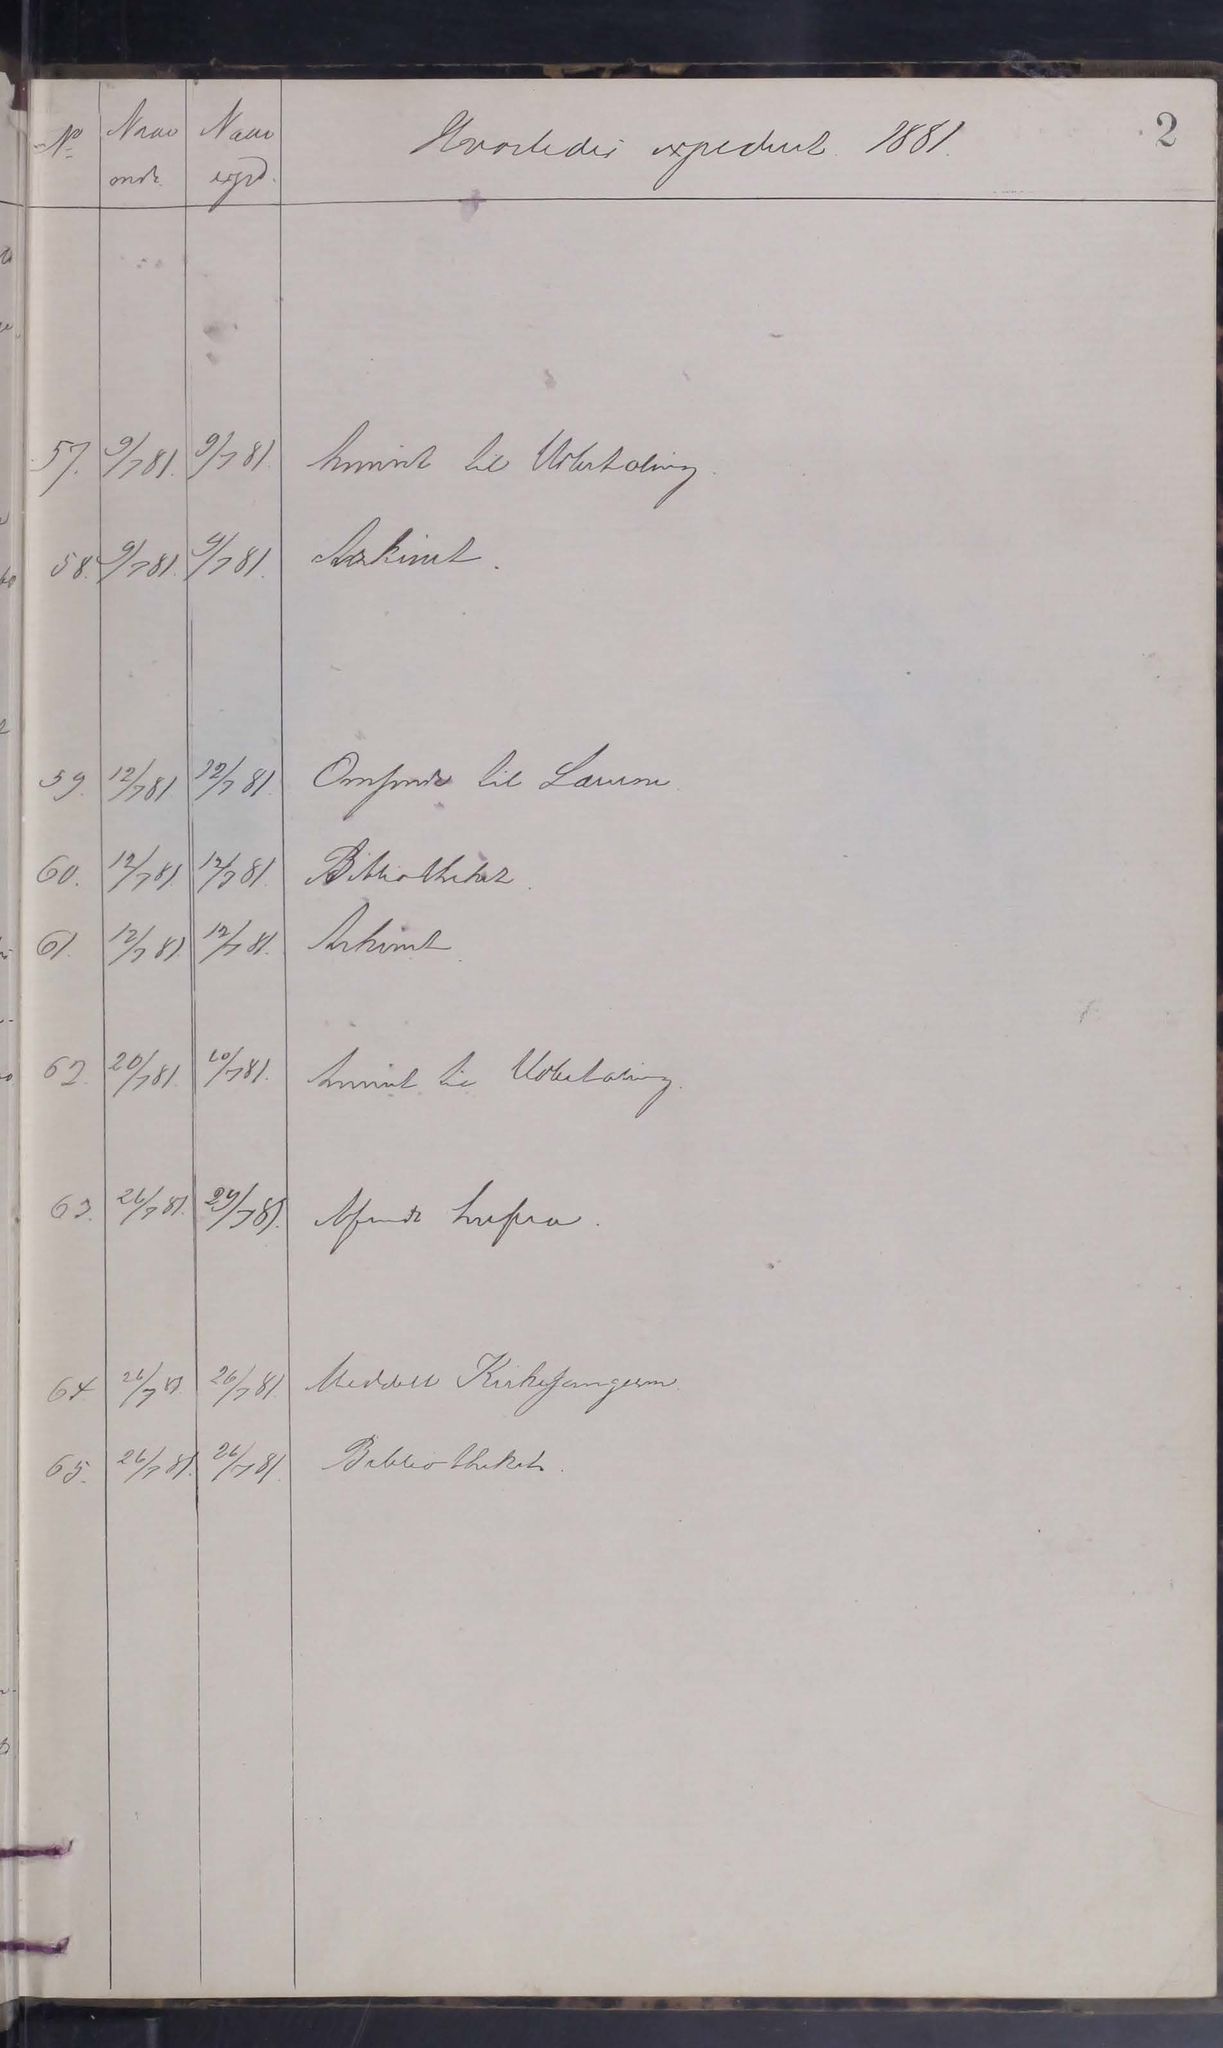 2
No Naar Naar Hvorledes expederet. 1881.
modt. expd.
57. 9/7 81. 9/7 81. Anvist til Udbetaling.
58. 9/7 81. 9/7 81. Arkivet.
59. 12/7 81. 12/7 81. Omsendt til Lærerne.
60. 12/7 81. 12/7 81. Bibliotheket.
61. 12/7 81. 12/7 81. Arkivet.
62. 20/7 81. 20/7 81. Anvist til Udbetaling.
63. 26/7 81. 29/7 81. Afsendt
64. 26/7 81. 26/7 81. Meddelt Kirkesangeren.
65. 26/7 81. 26/7 81. Bibliotheket.